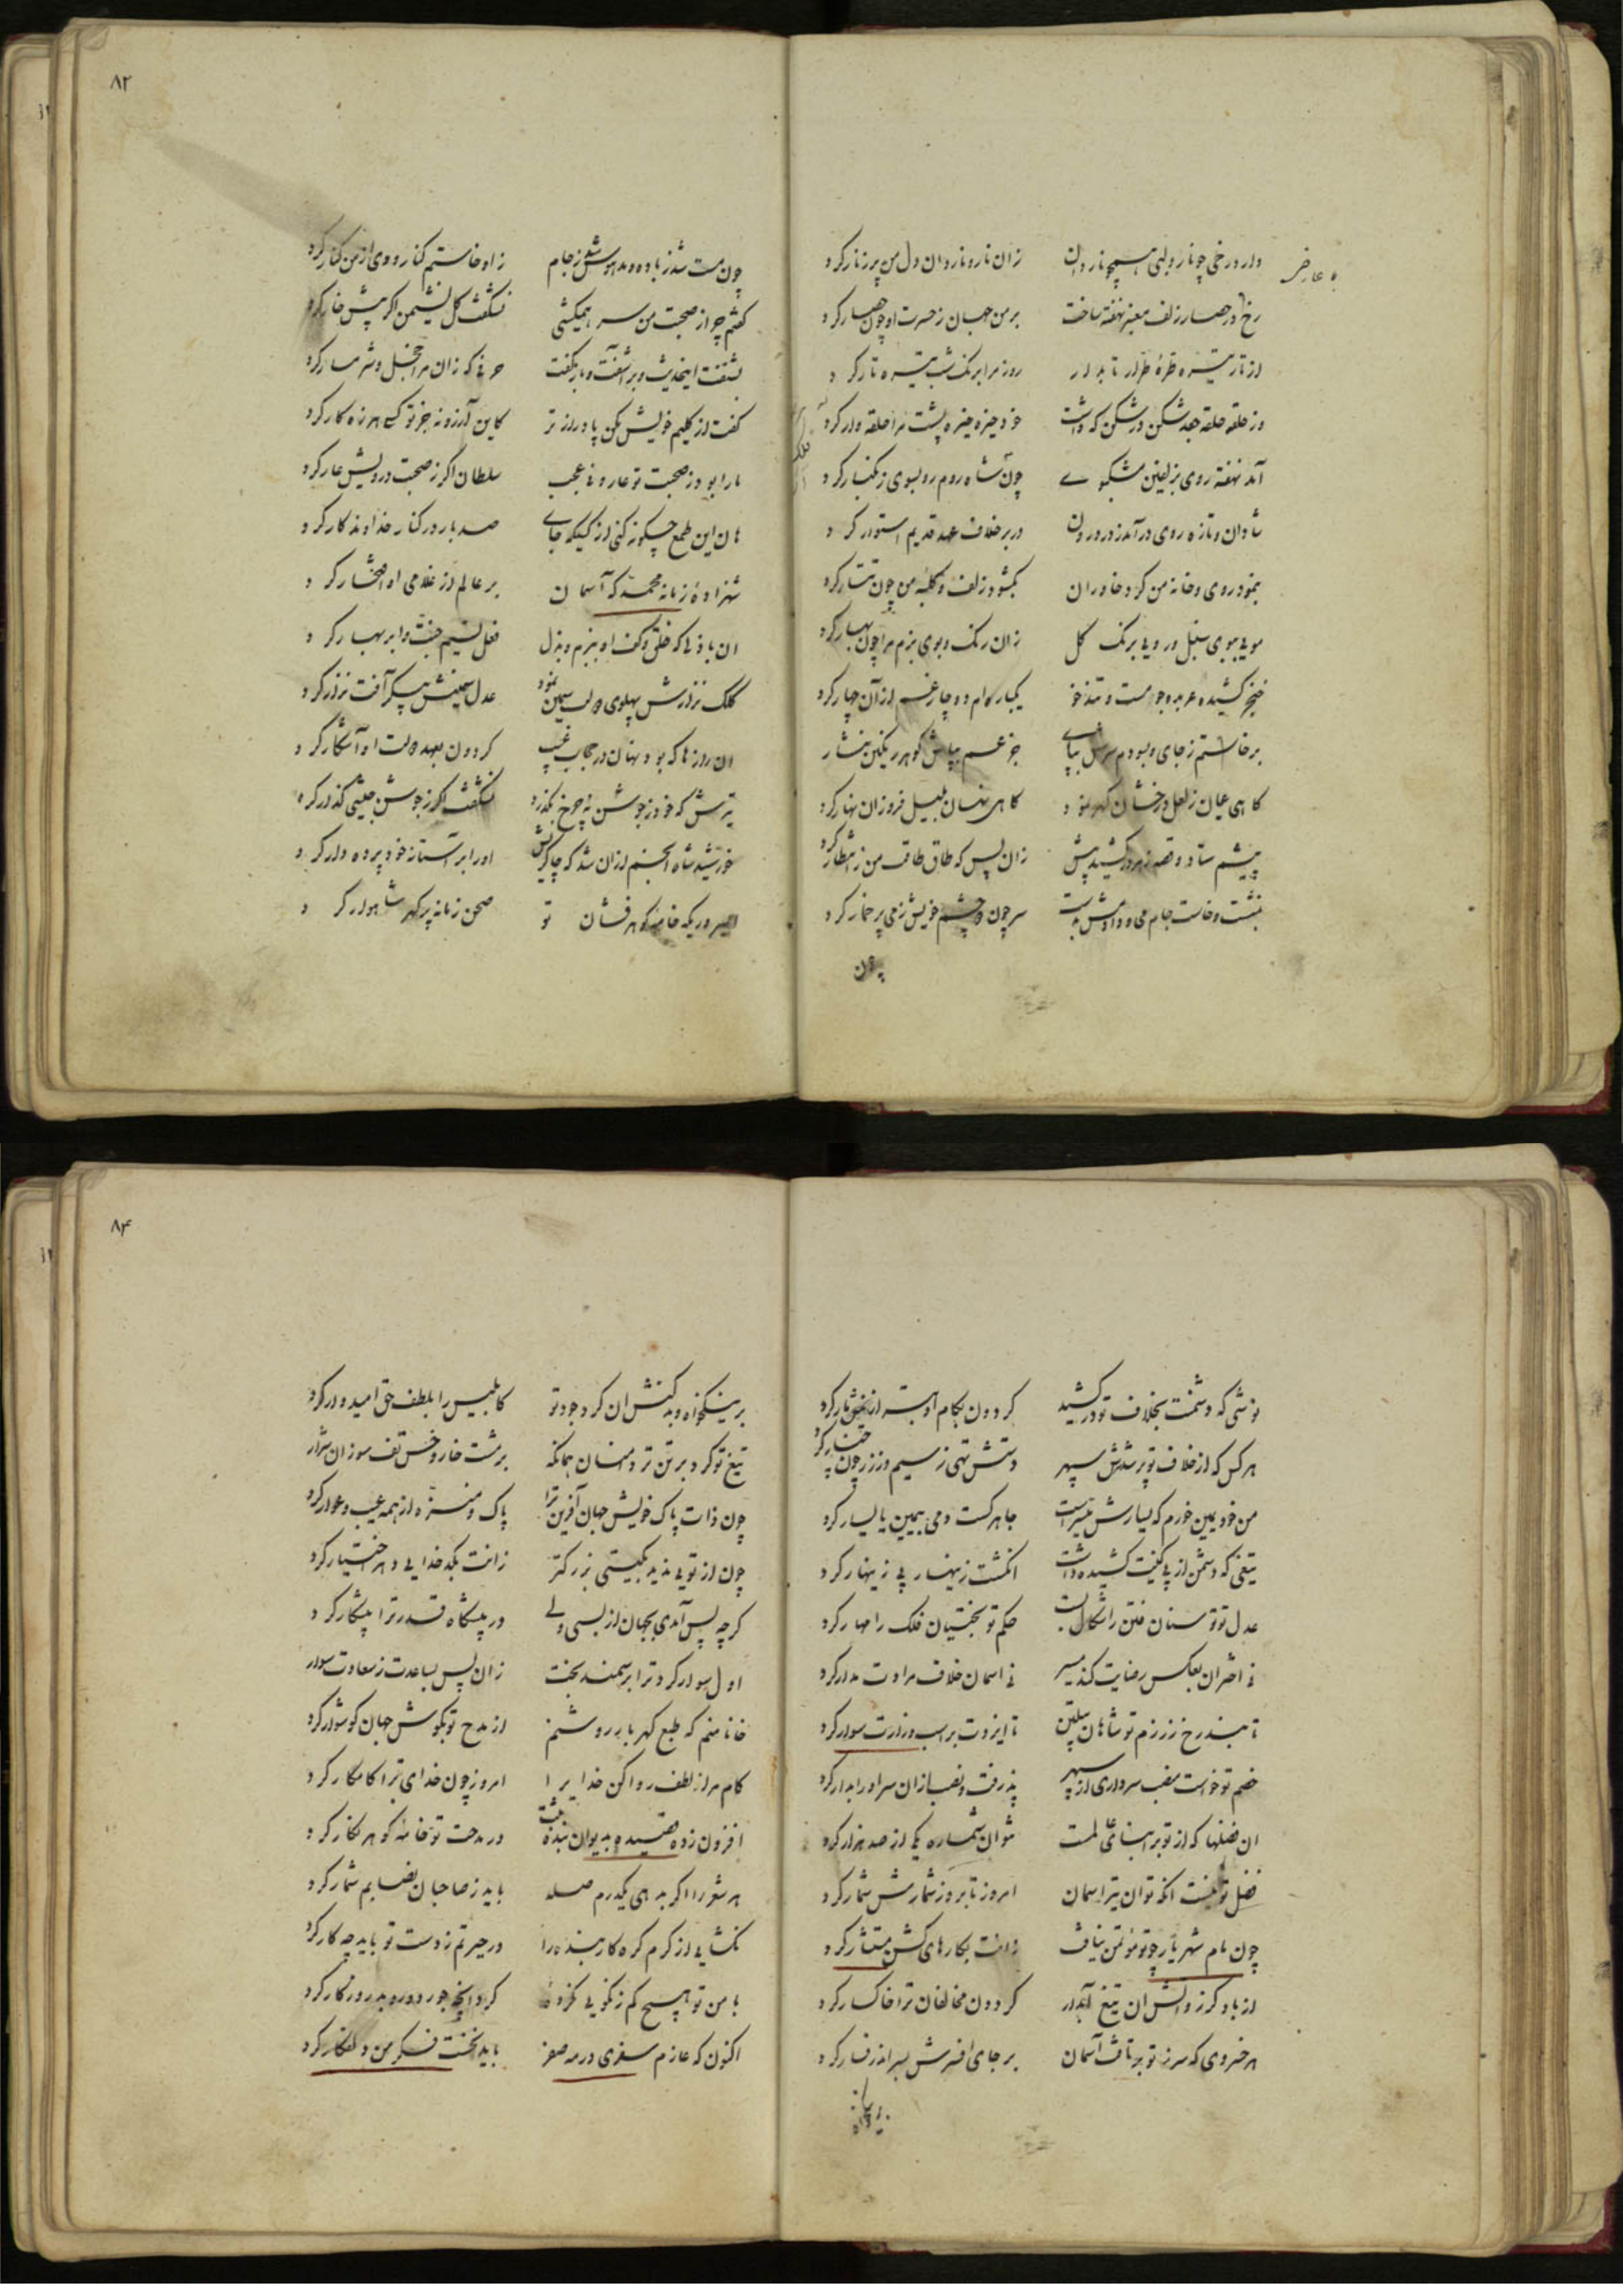 دارد رخی چو نار و لبی همچو ناردان    زان نار و ناردان دل من پر ز نار کرد
عارض
رخ در حصار زلف معنبر نهفته ساخت    بر من جهان ز حسرت او چون حصار کرد
از تار تیره طره طرار تابدار    روز مرا برنگ شب تیره تار کرد
وز حلقه حلقه جعد شکن در شکن که داشت    خود خیره خیره پشت مرا حلقه وار کرد
آمد نهفته روی بزلفین مشکبوی    چون شاه روم رو بسوی زنگبار کرد
شادان و تازه روی درآمد ز در درون    در بر خلاف عهد قدیم استوار کرد
بنمود روی و خانه من کرد خاوران    بگشود زلف و کلبه من چون تتار کرد
مویی ببوی سنبل و رویی برنگ گل    زان رنگ و بوی بزم مرا چون بهار کرد
خنجر کشیده عربده جو مست و تندخو    یکباره ام دوچار غم از آن چهار کرد
برخاستم ز جای و ببودم سرش بپای    جزعم بپاش گوهر رنگین نثار کرد
گاهی عیان ز لعل درخشان گهر نمود    گاهی نهان بلیل فروزان نهار کرد
پیشم ستاد و قصه ز هر در کشید پیش    زان پس که طاق طاقت من ز انتظار کرد
بنشست و خاست جام می و دادمش بدست    سر چون دو چشم خویش ز می پر خمار کرد
چون
۸۲
چون مست شد ز باده و مدهوش شد ز جام    زو خواستم کنار و وی از من کنار کرد
گفتم چو از صحبت من سر همیکشی    نشگفت گل نشیمن اگر پیش خار کرد
بشنفت اینحدیث و برآشفت و باز گفت    حرفی که زان مرا خجل و شرمسار کرد
گفت از گلیم خویش مکن پا درازتر    کاین آرزو نه جز تو کسی هرزه کار کرد
ما را بود ز صحبت تو عار و نی عجب    سلطان اگر ز صحبت درویش عار کرد
هان این طمع چگونه کنی از کسیکه جای    صد بار در کنار خداوندگار کرد
شهزاده زمانه محمد که آسمان    بر عالم از غلامی او افتخار کرد
ان باذلی که خلق و کف او ببزم و بذل    فعل نسیم جنت و ابر بهار کرد
کلک نزارش پهلوی دولت سمین نمود    عدل سمینش پیکر آفت نزار کرد
ان روزها که بود نهان در حجاب غیب    گردون بعهد دولت او آشکار کرد
تیرش که خود ز جوشن نه چرخ بگذرد    نشگفت اگر ز جوشن جیشی گذار کرد
خورشید شاه انجم ازان شد که چاکریش    او را بر آستانه خود پرده دار کرد
ای سروریکه خامه گوهر فشان تو    صحن زمانه پر گهر شاهوار کرد
نوشی که دشمنت بخلاف تو درکشید    گردون بکام او بتر از نیش مار کرد
هر کس که از خلاف تو پر شدش سپهر    دستش تهی ز سیم و زر چون چنار کرد
من خود یمین خورم که یسارش میسر است    جاهر کست دمی بیمین یا یسار کرد
تیغی که دشمن از پی کینت کشیده داشت    انگشت زینهار پی زینهار کرد
عدل تو توسنان فتن را شکال بست    حکم تو بختیان فلک را مهار کرد
نی اختران بعکس رضایت کند مسیر    نی اسمان خلاف مرادت مدار کرد
تا بند رخ ز رزم تو شاهان پیلتن    تا ایزدت بر اسب وزارت سوار کرد
خصم تو خواست منصب سرداری از سپهر    پذرفت و نصب ازان سر او را بدار کرد
ان فضلها که از تو بر ابنای عالمست    نتوان شماره یکی از صد هزار کرد
فضل تو نیست انکه توان تیر اسمان    امروز تا بروز شمارش شمار کرد
چون نام شهریار چو تو مؤتمن نیافت    زانت بکارهای کشن مستشار کرد
از باد گرز و آتش ان تیغ آبدار    گردون مخالفان ترا خاکسار کرد
هر خسروی که سر ز تو برتافت آسمان    بر جای افسرش بسر اندر فسار کرد
۸۴
بر نیکخواه و بدکنش ان کرد جود تو    کابلیس را بلطف حق امیدوار کرد
تیغ تو کرد بر تن تر دامنان همانکه    بر مشت خار و خس تف سوزان شرار
چون ذات پاک خویش جهان آفرین ترا    پاک و منزه از همه عیب و عوار کرد
چون از تویی ندید بگیتی بزرگتر    زانت بکدخدایی دهر اختیار کرد
گرچه پس آمدی بجهان از بسی ولی    در پیشگاه قدر ترا پیشکار کرد
اول سوار کرد ترا بر سمند بخت    زان پس بساعدت ز سعادت سوار
خانا منم که طبع گهربار روشنم    از مدح تو بگوش جهان گوشوار کرد
کام مرا ز لطف روا کن خدایرا    امروز چون خدای ترا کامکار کرد
افزون ز ده قصیده بدیوان بنده ثبت    در مدحت تو خامه گوهر نگار کرد
هر شعر را اگر بدهی یکدرم صله    باید ز صاحبان نصابم شمار کرد
نگشایی از کرم گره کار بنده را    در حیرتم ز دست تو باید چه کار کرد
با من تو هیچ کم ز نکویی نکرده    کرد انچه جور دوره بد روزگار کرد
اکنون که عازم سفری در مه صفر    باید نخست فکر من دلفگار کرد